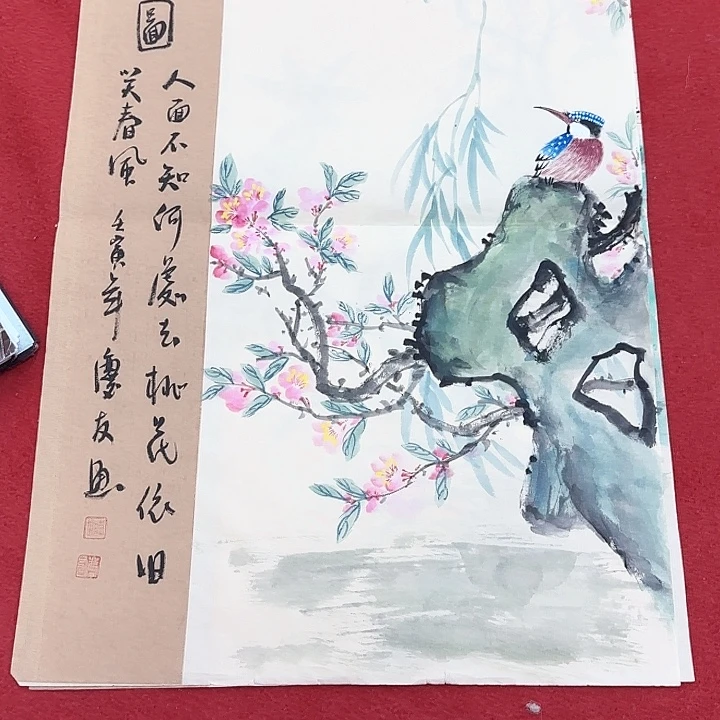 圖
人面不知何處去桃花依旧
笑春風 壬寅年 友画